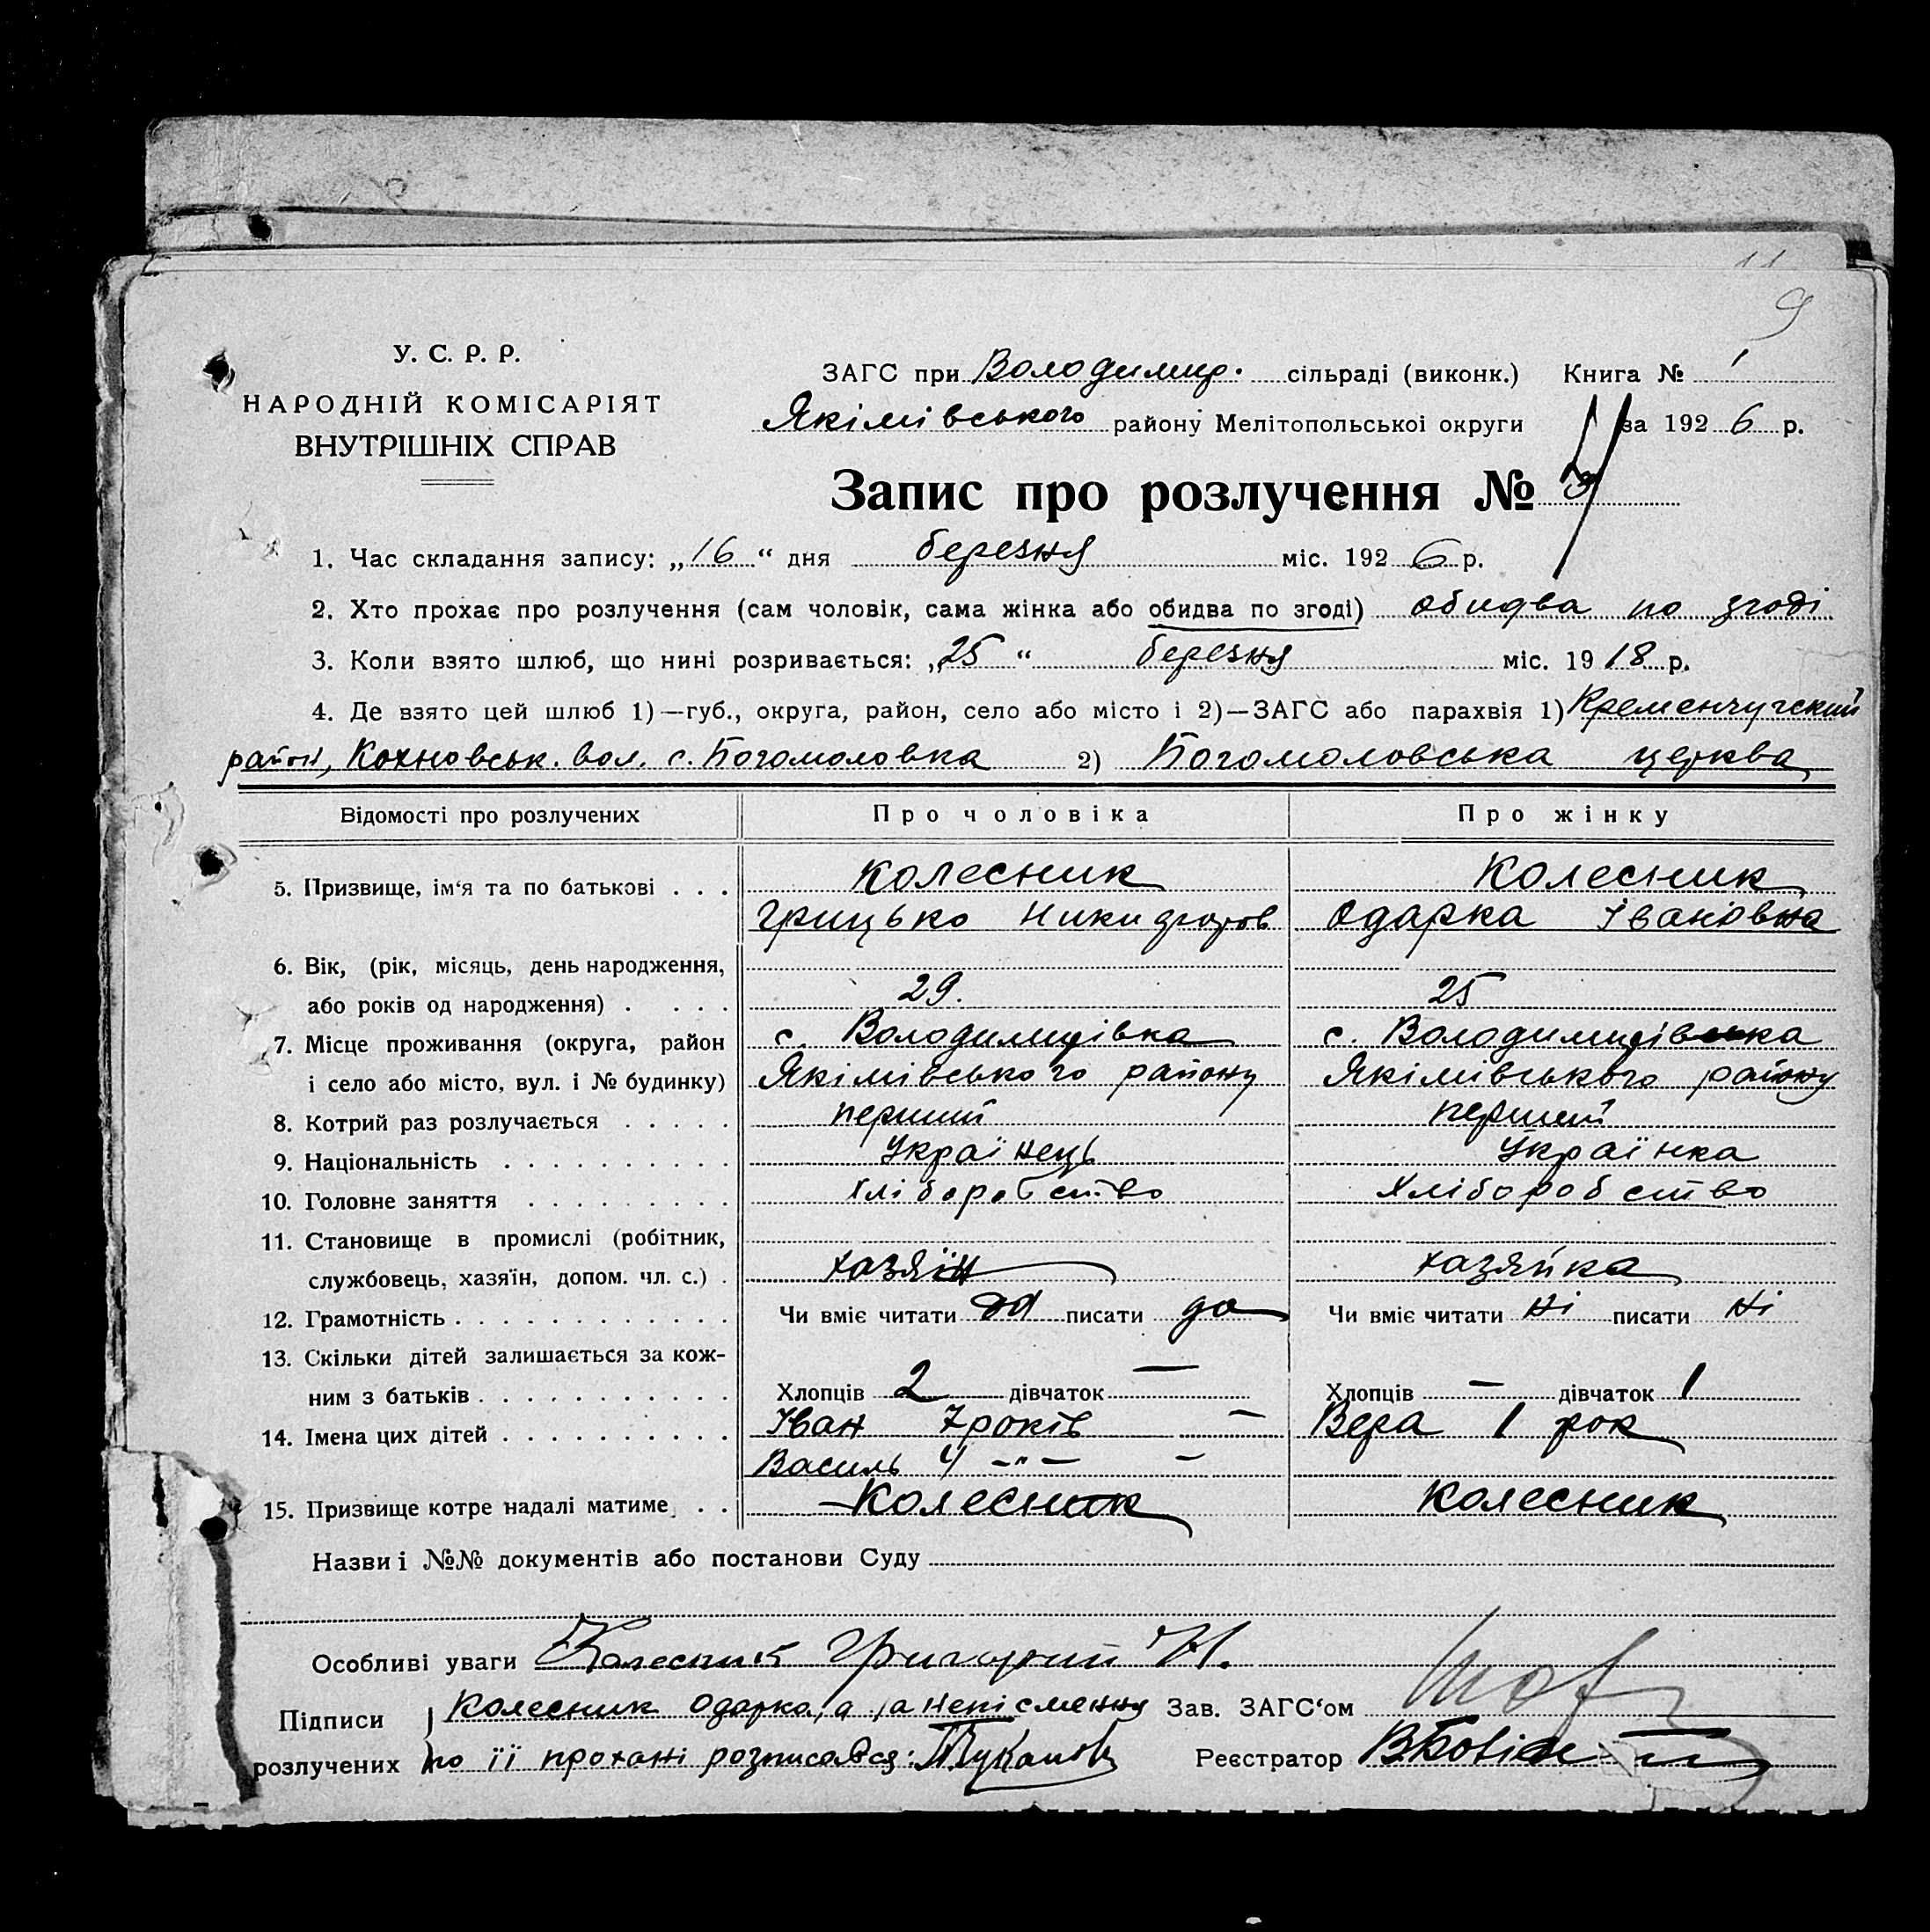 11
9
У. С. Р. Р.
НАРОДНІЙ КОМІСАРІЯТ
ВНУТРІШНІХ СПРАВ
ЗАГС при Володимир. сільраді (виконк.) Книга № 1
Якімівського району Мелітопольської округи за 1926 р.
Запис про розлучення №
1. Час складання запису: „16“ дня березня міс. 1926 р.
2. Хто прохає про розлучення (сам чоловік, сама жінка або обидва по згоді) обидва по згоді
3. Коли взято шлюб, що нині розривається: „25“ березня міс. 1918 р.
4. Де взято цей шлюб 1)—губ., округа, район, село або місто і 2)—ЗАГС або парахвія 1) Кременчугский
район, Кохновськ. вол. с. Богомоловка 2) Богомоловська церква
Відомості про розлучених Про чоловіка Про жінку
5. Призвище, ім‘я та по батькові . . . Колесник Колесник
Грицько Никифоров Одарка Івановна
6. Вік, (рік, місяць, день народження,
або років од народження) . . . . 29. 25
7. Місце проживання (округа, район с. Володимирівка с. Володимирівка
і село або місто, вул. і № будинку) Якімівського району Якімівського району
8. Котрий раз розлучається . . . . . перший перший
9. Національність . . . . . . . . . . Українець Українка
10. Головне заняття . . . . . . . . . хліборобство хліборобство
11. Становище в промислі (робітник,
службовець, хазяїн, допом. чл. с.) . хазяїн хазяйка
12. Грамотність . . . . . . . . . . . . Чи вміє читати да писати да Чи вміє читати ні писати ні
13. Скільки дітей залишається за кож-
ним з батьків . . . . . . . . . . . Хлопців 2 дівчаток — Хлопців — дівчаток 1
14. Імена цих дітей . . . . . . . . . . Іван 7 років — Вера 1 рок
Василь 4 —"— —
15. Призвище котре надалі матиме . . Колесник Колесник
Назви і №№ документів або постанови Суду
Особливі уваги Колесник Григорий Н.
Підписи Колесник Одарка, а за непісменну Зав. ЗАГС‘ом
розлучених по її прохані розписався: Реєстратор